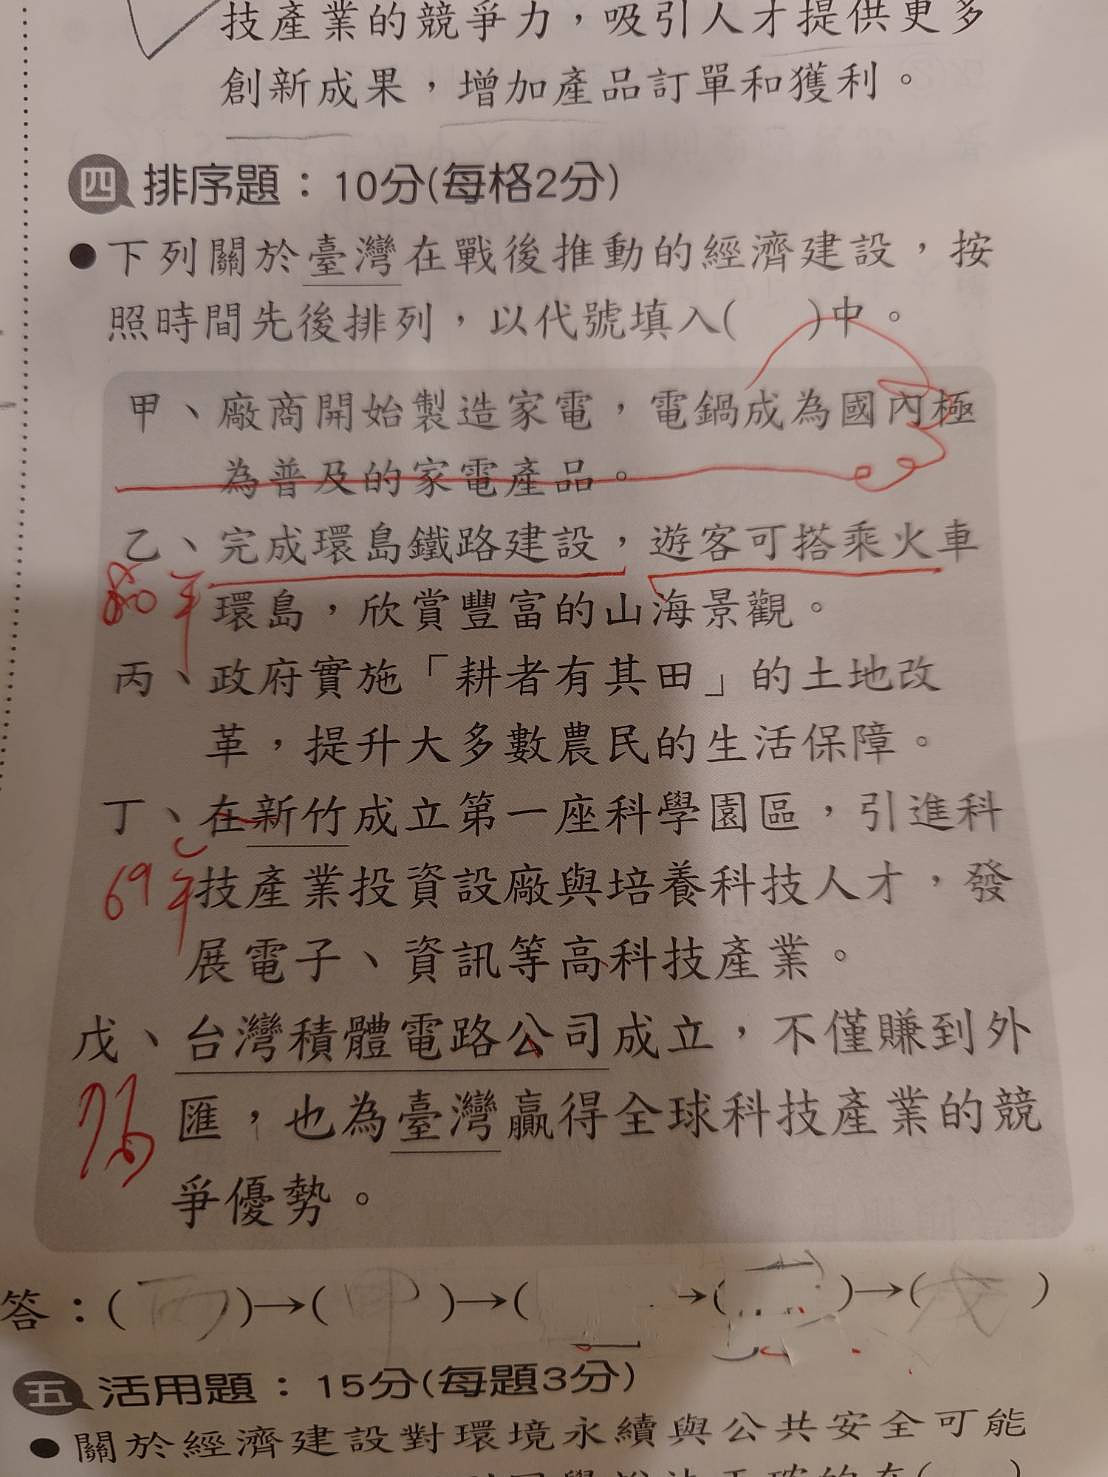 技產業的競爭力，吸引人才提供更多
創新成果，增加產品訂單和獲利。
四 排序題：10分(每格2分)
●下列關於臺灣在戰後推動的經濟建設，按
照時間先後排列，以代號填入(　)中。
甲、廠商開始製造家電，電鍋成為國內極
為普及的家電產品。
乙、完成環島鐵路建設，遊客可搭乘火車
80年 環島，欣賞豐富的山海景觀。
丙、政府實施「耕者有其田」的土地改
革，提升大多數農民的生活保障。
丁、在新竹成立第一座科學園區，引進科
69年 技產業投資設廠與培養科技人才，發
展電子、資訊等高科技產業。
戊、台灣積體電路公司成立，不僅賺到外
76 匯，也為臺灣贏得全球科技產業的競
爭優勢。
答：(丙)→(甲)→(　→(　)→(戊)
五 活用題：15分(每題3分)
●關於經濟建設對環境永續與公共安全可能